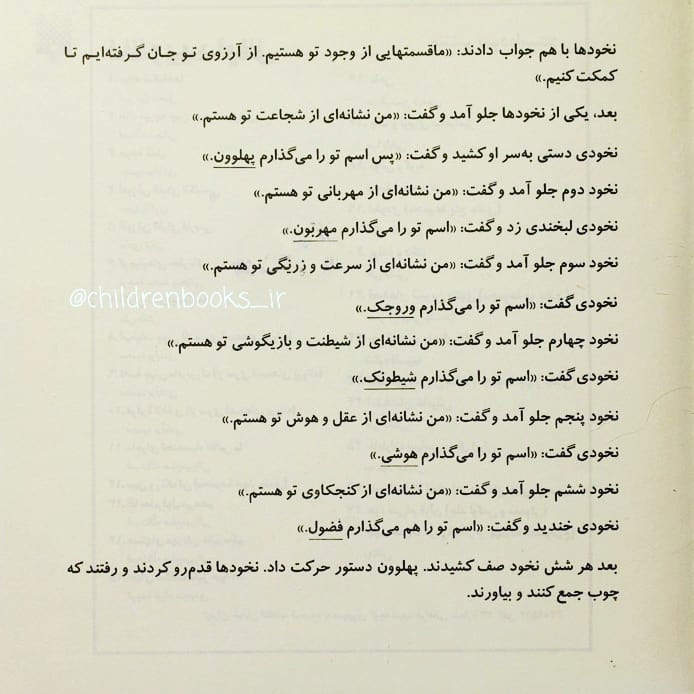 نخودها با هم جواب دادند: «ماقسمتهایی از وجود تو هستیم. از آرزوی تو جان گرفته‌ایم تا
کمکت کنیم.»
بعد، یکی از نخودها جلو آمد و گفت: «من نشانه‌ای از شجاعت تو هستم.»
نخودی دستی به‌سر او کشید و گفت: «پس اسم تو را می‌گذارم پهلوون.»
نخود دوم جلو آمد و گفت: «من نشانه‌ای از مهربانی تو هستم.»
نخودی لبخندی زد و گفت: «اسم تو را می‌گذارم مهربون.»
نخود سوم جلو آمد و گفت: «من نشانه‌ای از سرعت و زرنگی تو هستم.»
@childrenbooks_ir
نخودی گفت: «اسم تو را می‌گذارم وروجک.»
نخود چهارم جلو آمد و گفت: «من نشانه‌ای از شیطنت و بازیگوشی تو هستم.»
نخودی گفت: «اسم تو را می‌گذارم شیطونک.»
نخود پنجم جلو آمد و گفت: «من نشانه‌ای از عقل و هوش تو هستم.»
نخودی گفت: «اسم تو را می‌گذارم هوشی.»
نخود ششم جلو آمد و گفت: «من نشانه‌ای از کنجکاوی تو هستم.»
نخودی خندید و گفت: «اسم تو را هم می‌گذارم فضول.»
بعد هر شش نخود صف کشیدند. پهلوون دستور حرکت داد. نخودها قدم‌رو کردند و رفتند که
چوب جمع کنند و بیاورند.